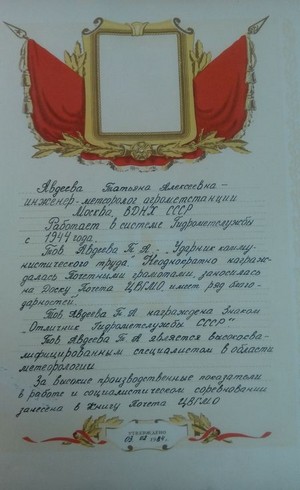 Авдеева Татьяна Алексеевна –
инженер-метеоролог агрометстанции
Москва, ВДНХ СССР
Работает в системе Гидрометслужбы
с 1944 года.
Тов. Авдеева Т.А. – „Ударник комму-
нистического труда". Неоднократно награж-
далась Почетными грамотами, заносилась
на Доску Почета ЦВГМО, имеет ряд благо-
дарностей.
Тов. Авдеева Т.А. награждена Знаком
„Отличник Гидрометслужбы СССР".
Тов. Авдеева Т.А. является высококва-
лифицированным специалистом в области
метеорологии.
За высокие производственные показатели
в работе и социалистическом соревновании
занесена в Книгу Почета ЦВГМО
УТВЕРЖДЕНО